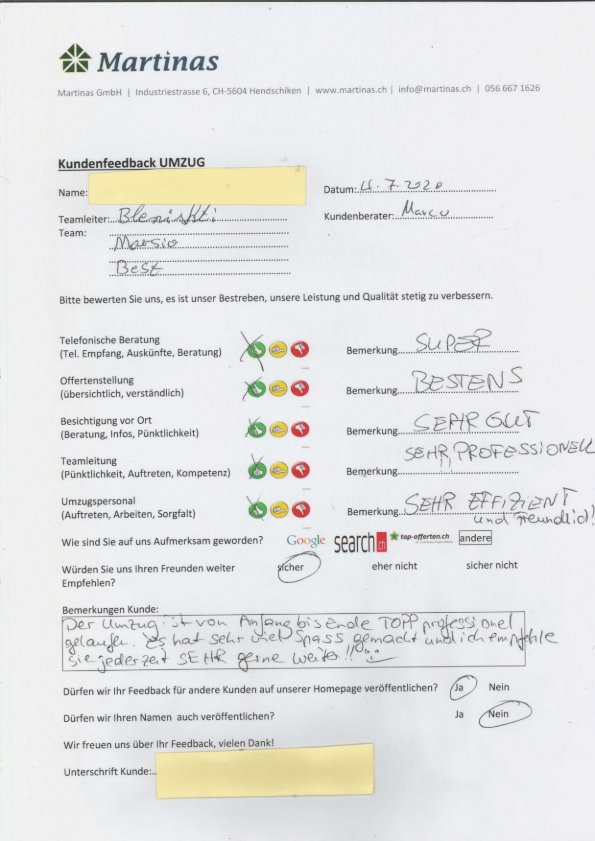 Martinas
Martinas GmbH | Industriestrasse 6, CH-5604 Hendschiken | www.martinas.ch | info@martinas.ch | 056 667 1626
Kundenfeedback UMZUG
Name:
Datum: 4.7.2020
Teamleiter:
Kundenberater: Marco
Team: Marsio
Best
Bitte bewerten Sie uns, es ist unser Bestreben, unsere Leistung und Qualität stetig zu verbessern.
Telefonische Beratung
(Tel. Empfang, Auskünfte, Beratung)
Bemerkung SUPER
Offertenstellung
(übersichtlich, verständlich)
Bemerkung BESTENS
Besichtigung vor Ort
(Beratung, Infos, Pünktlichkeit)
Bemerkung SEHR GUT
Teamleitung
(Pünktlichkeit, Auftreten, Kompetenz)
SEHR PROFESSIONELL
Bemerkung
Umzugspersonal
(Auftreten, Arbeiten, Sorgfalt)
Bemerkung SEHR EFFIZIENT
und freundlich!
Wie sind Sie auf uns Aufmerksam geworden? Google search.ch top-offerten.ch andere
Würden Sie uns Ihren Freunden weiter sicher eher nicht sicher nicht
Empfehlen?
Bemerkungen Kunde:
Der Umzug ist von Anfang bis Ende TOPP professionel
gelaufen. Es hat sehr viel Spass gemacht und ich empfehle
Sie jederzeit SEHR gerne weiter!!
Dürfen wir Ihr Feedback für andere Kunden auf unserer Homepage veröffentlichen? Ja Nein
Dürfen wir Ihren Namen auch veröffentlichen? Ja Nein
Wir freuen uns über Ihr Feedback, vielen Dank!
Unterschrift Kunde: